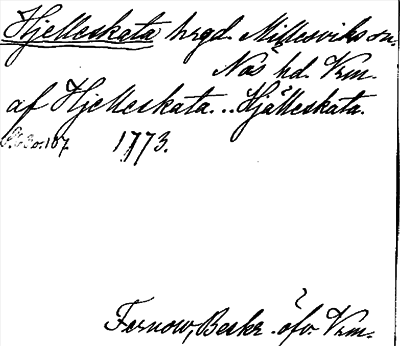 Hjelleskata hrgd. Millesviks sn.
Näs hd. Vrm.
af Hjelleskata... Hjälleskata.
S. 30. 107. 1773.
Fernow, Beskr. öfv. Vrm.